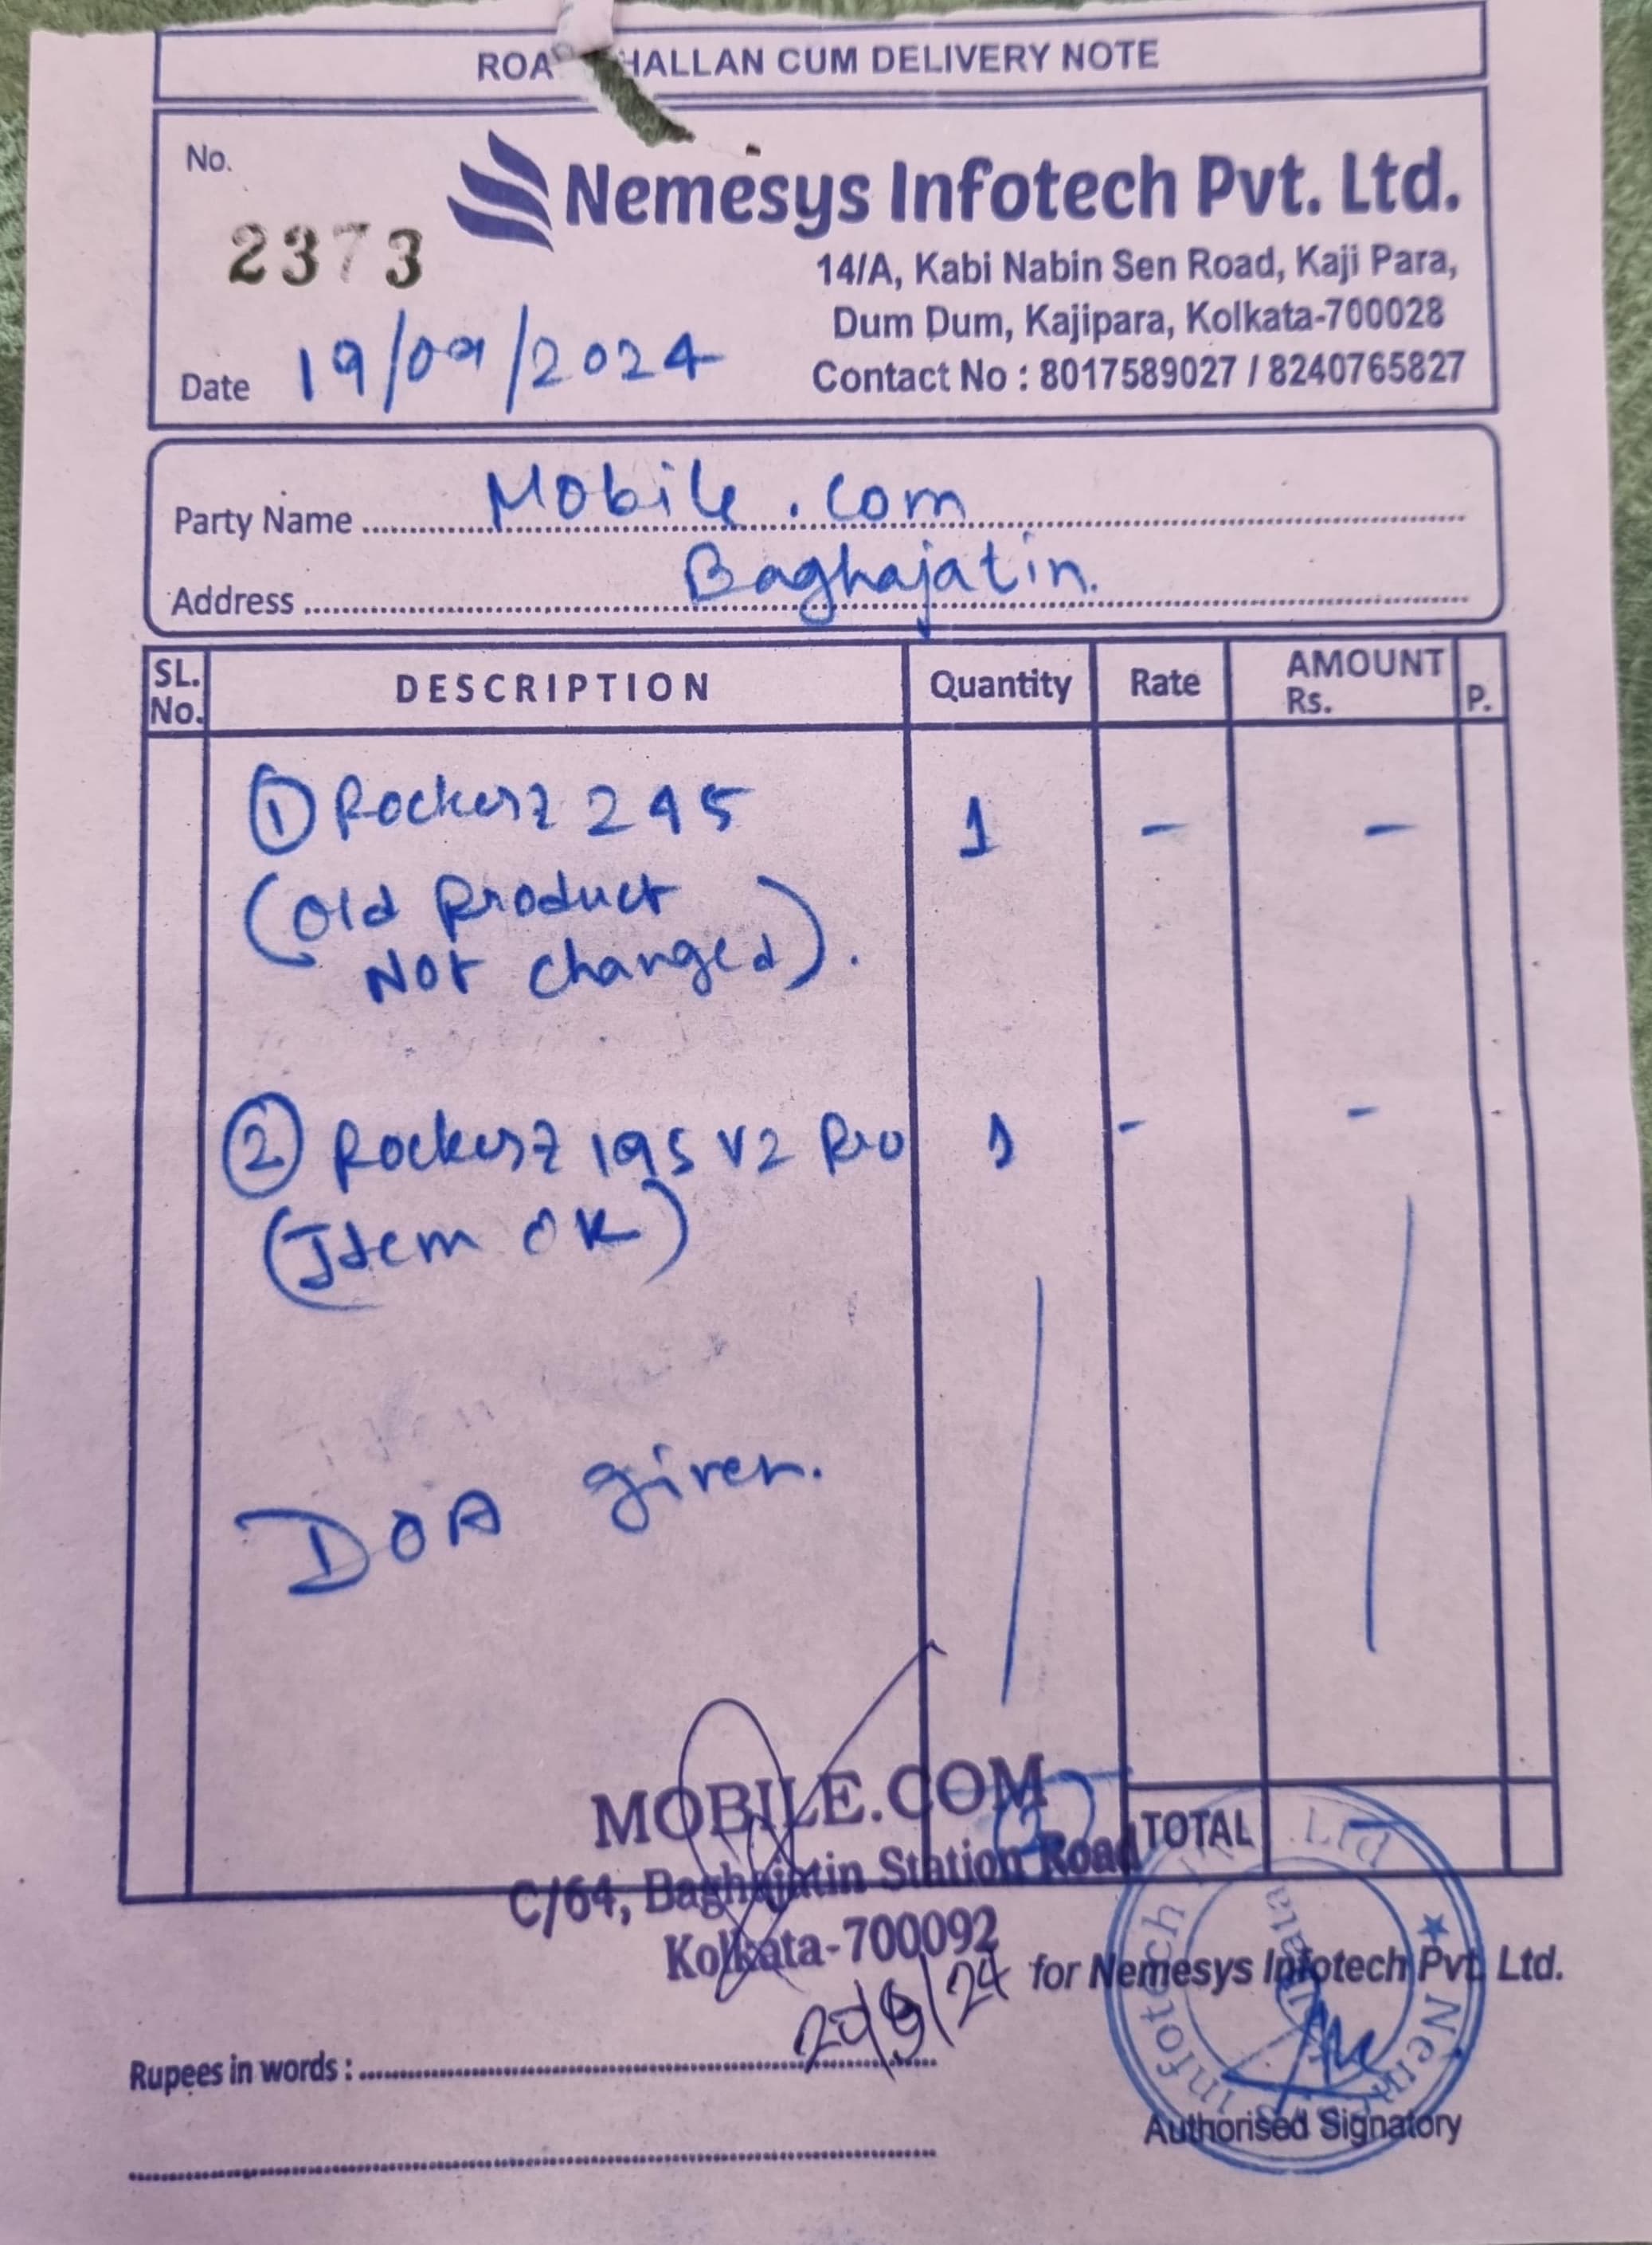 ROA HALLAN CUM DELIVERY NOTE
No.
2373
Nemesys Infotech Pvt. Ltd.
14/A, Kabi Nabin Sen Road, Kaji Para,
Dum Dum, Kajipara, Kolkata-700028
Contact No : 8017589027 / 8240765827
Date 19/09/2024
Party Name Mobile.com
Address Baghajatin.
SL. No. DESCRIPTION Quantity Rate AMOUNT Rs. P.
① Rockerz 245 1 - -
(Old Product
Not changed).
② Rockerz 195 V2 Pro 1 - -
(Item OK)
DOA given.
MOBILE.COM
C/64, Baghajatin Station Road
Kolkata-700092
TOTAL
20/9/24
for Nemesys Infotech Pvt. Ltd.
Rupees in words :
Authorised Signatory